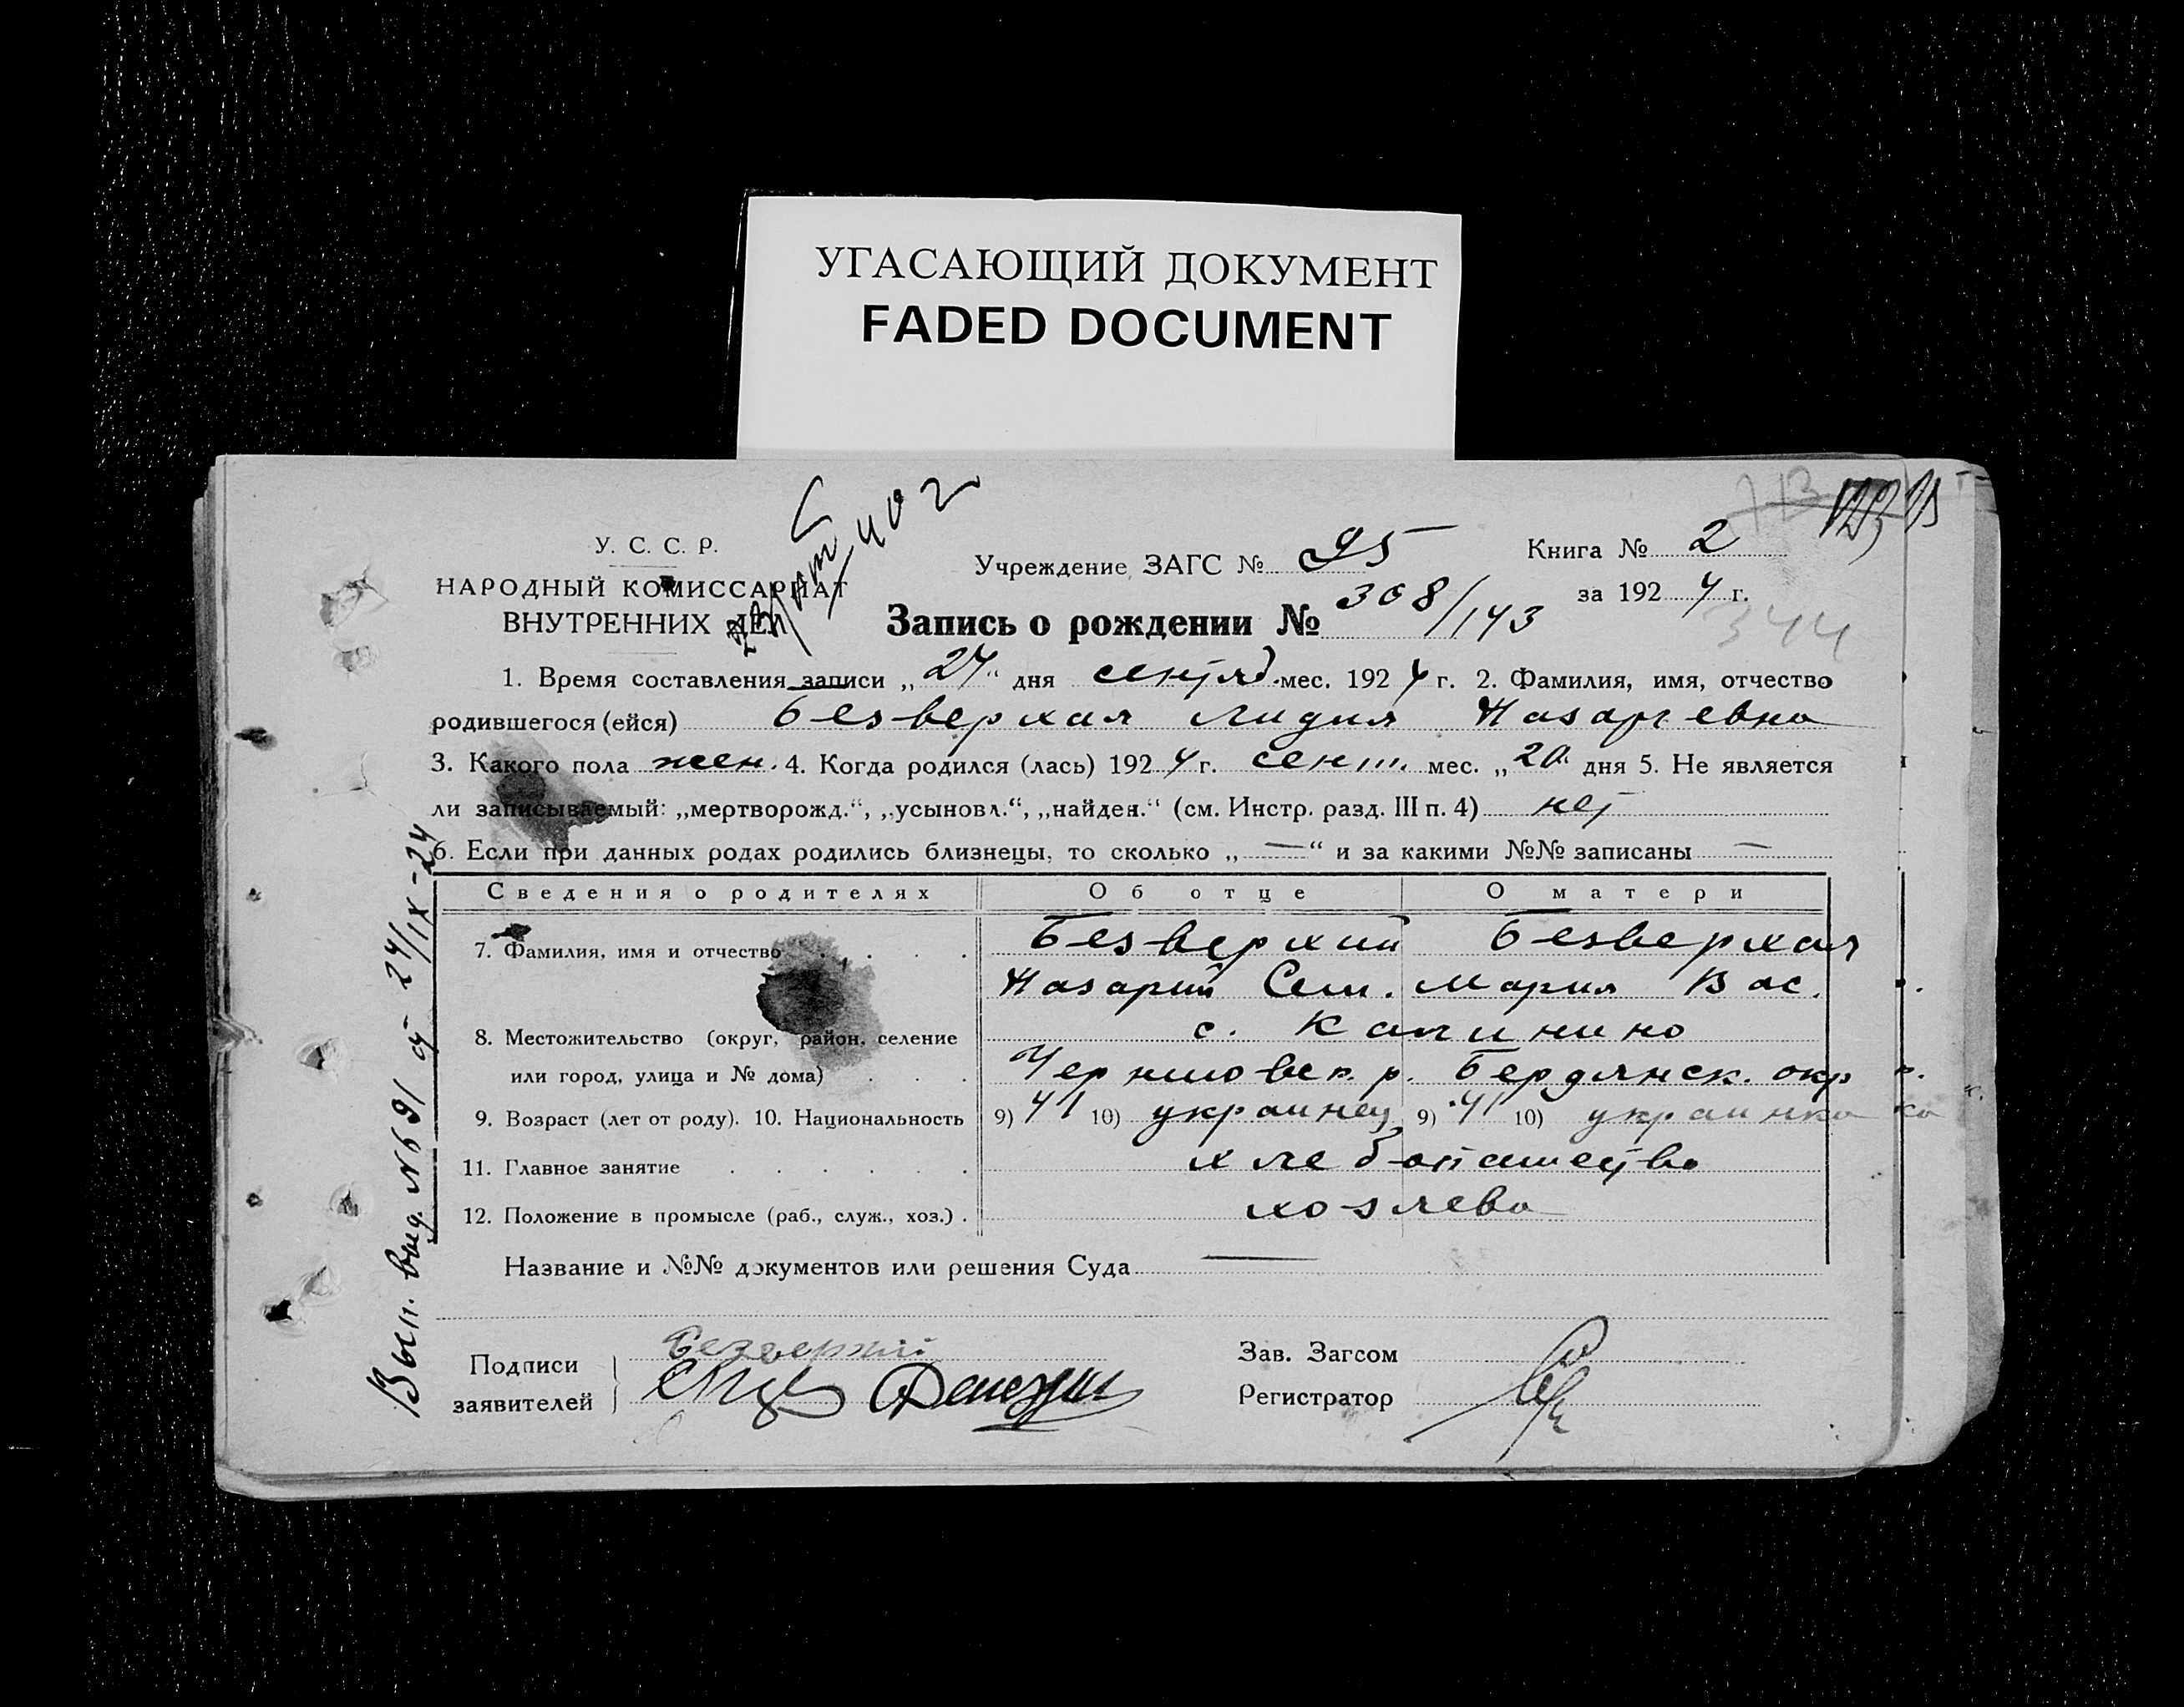 УГАСАЮЩИЙ ДОКУМЕНТ
FADED DOCUMENT
У. С. С. Р.
НАРОДНЫЙ КОМИССАРИАТ
ВНУТРЕННИХ ДЕЛ
Учреждение ЗАГС № 95
Книга № 2
за 1924 г.
Запись о рождении № 308/143
344
1. Время составления записи „24“ дня сентяб. мес. 1924 г. 2. Фамилия, имя, отчество
родившегося (ейся) Безверхая Лидия Назарьевна
3. Какого пола жен. 4. Когда родился (лась) 1924 г. сент. мес. „20“ дня 5. Не является
ли записываемый: „мертворожд.“, „усыновл.“, „найден.“ (см. Инстр. разд. III п. 4) нет
6. Если при данных родах родились близнецы, то сколько „—“ и за какими №№ записаны —
Сведения о родителях Об отце О матери
7. Фамилия, имя и отчество Безверхий Безверхая
Назарий Сем. Мария Вас.
8. Местожительство (округ, район, селение с. Калинино
или город, улица и № дома) р. Бердянск. окр
9. Возраст (лет от роду). 10. Национальность 9) 41 10) украинец 9) 41 10) украинка
11. Главное занятие хлебопашество
12. Положение в промысле (раб., служ., хоз.) хозяева
Название и №№ документов или решения Суда —
Подписи Безверхий
заявителей
Зав. Загсом
Регистратор
Вып. выд. № 691 от 24/IX-24